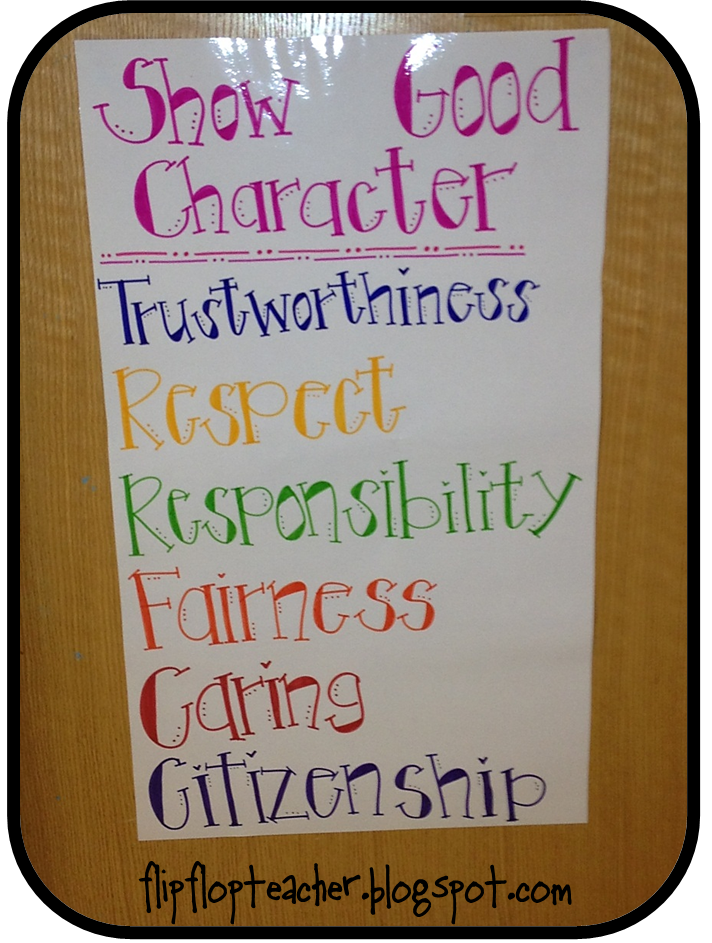 Show Good
Character
Trustworthiness
Respect
Responsibility
Fairness
Caring
Citizenship
flipflopteacher.blogspot.com